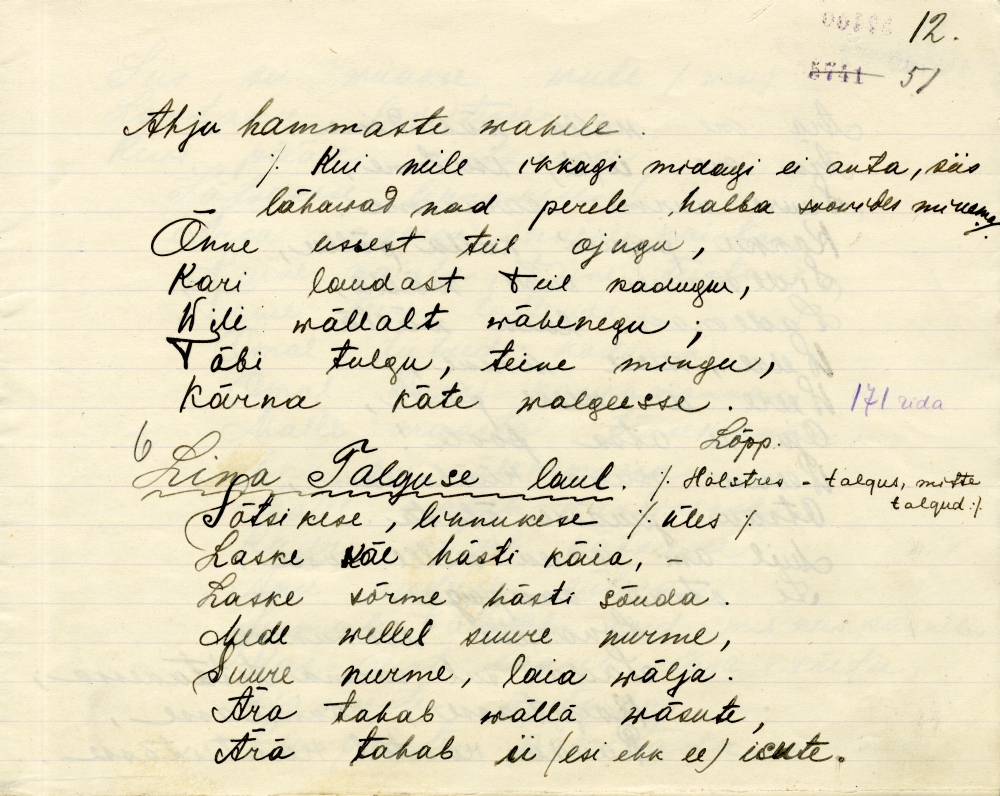 12.
5741 51
Ahju hammaste wahele.
/. Kui neile ikkagi midagi ei anta, siis
lähawad nad perele halba soovides minema
Õnne ussest teil ojugu,
Kari laudast teil kadugu,
Wili wällalt wähenegu;
Tõbi tulgu, teine mingu,
Kärna käte walgeesse.
171 rida
Lõpp.
6 Lina Talguse laul. /. Holstres - talgus, mitte
talgud :/.
Sõtsikese, linnukese /. üles /.
Laske käe hästi käia, -
Laske sõrme hästi sõuda.
Mede wellel suure nurme,
Suure nurme, laia wälja.
Ärä tahab wällä wäsute,
Ärä tahab ii (esi ehk ee) isute.